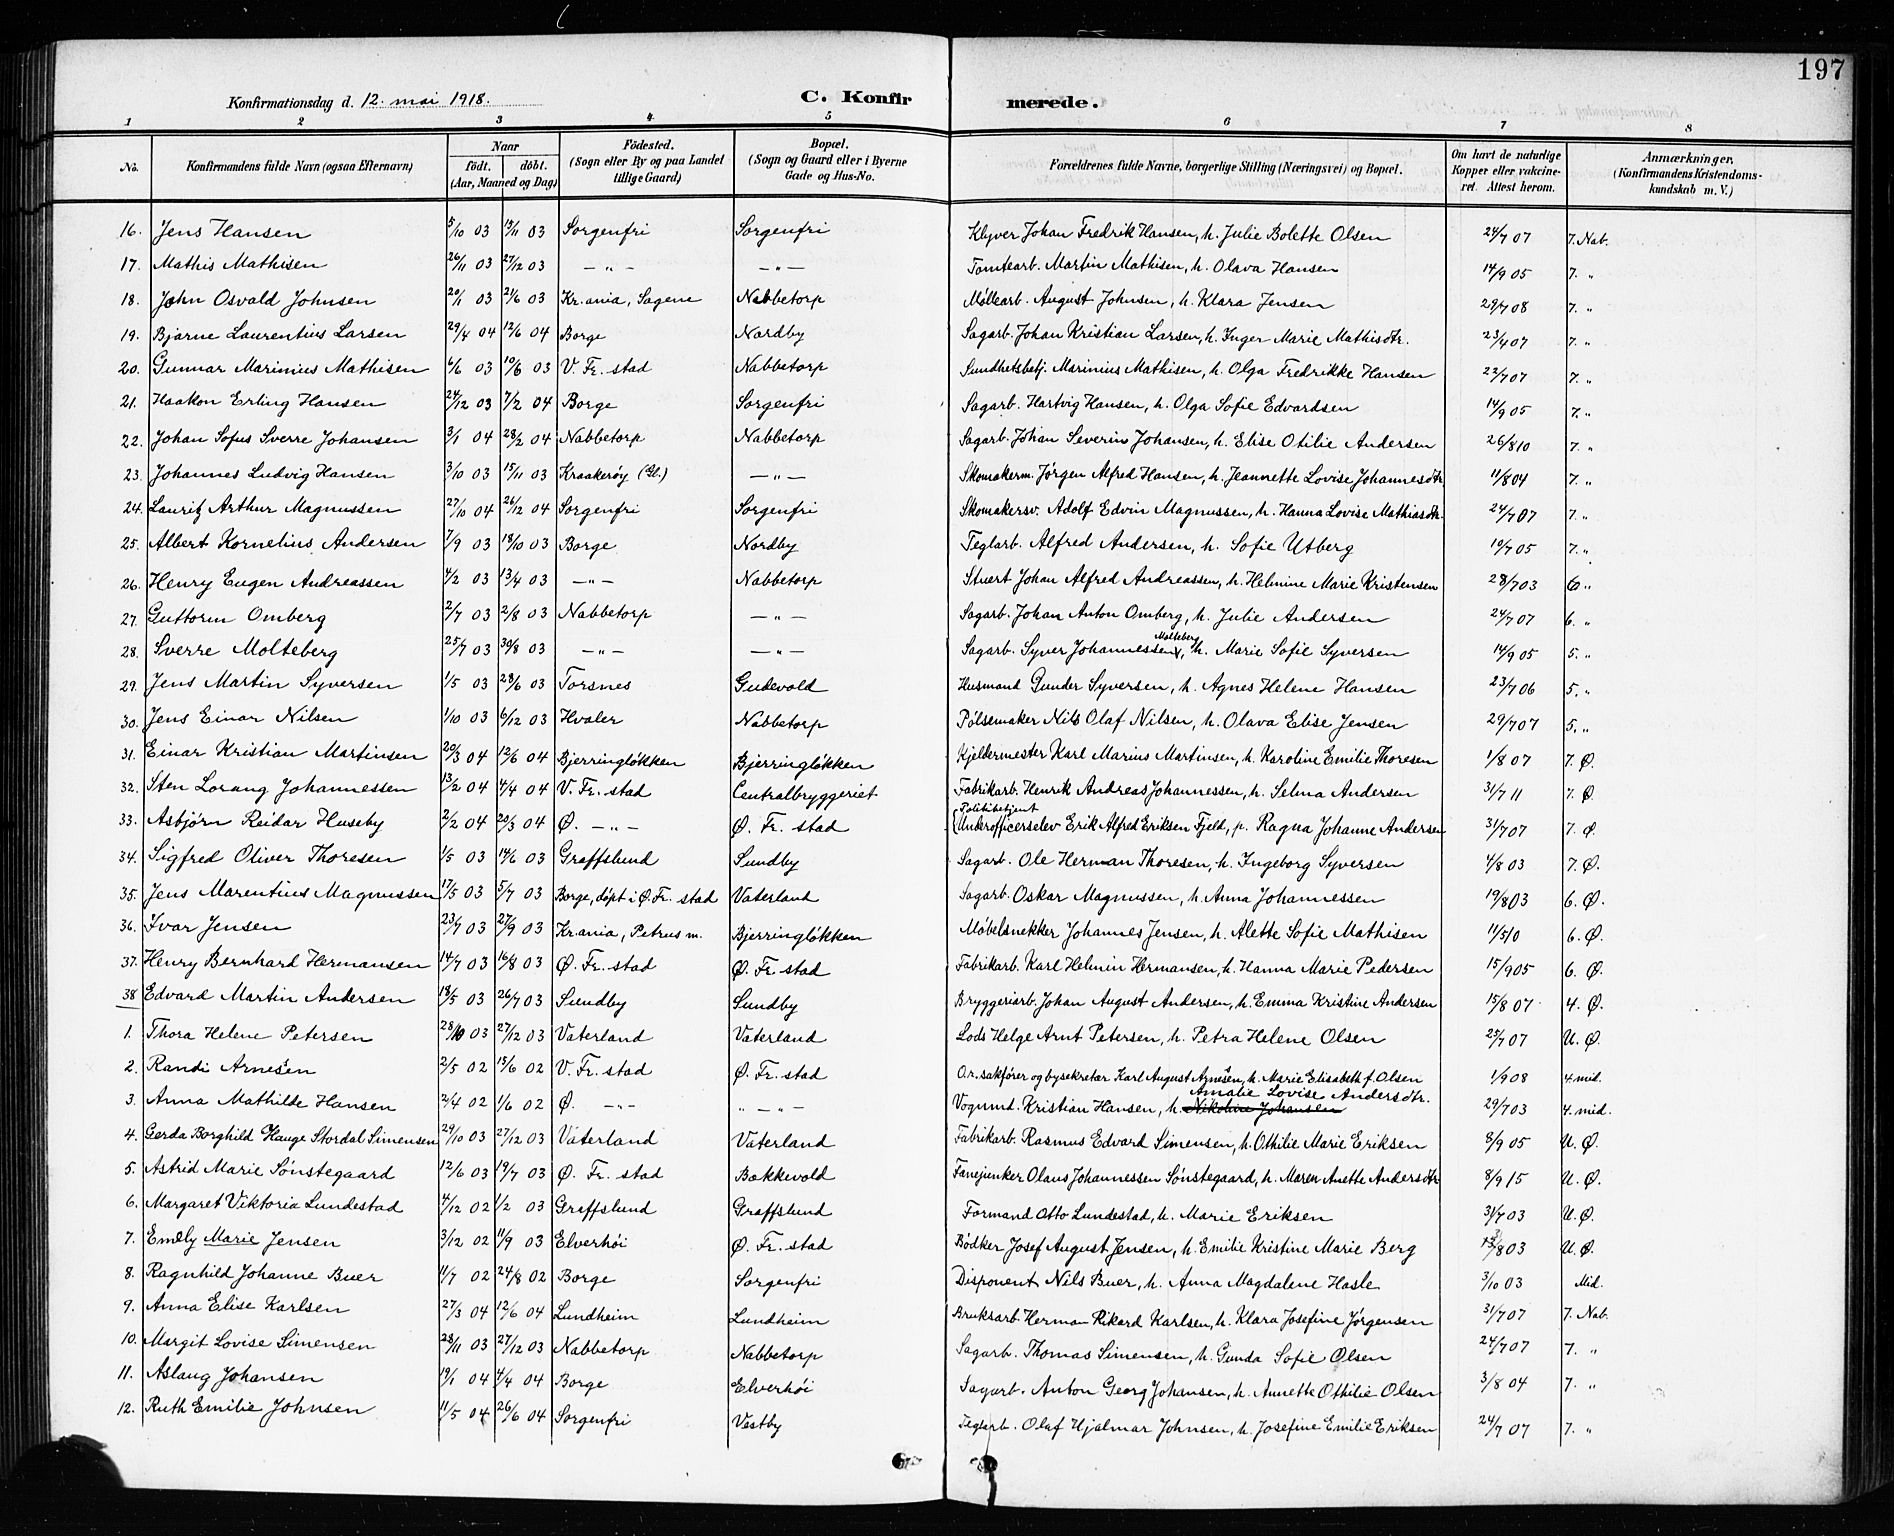 197
Konfirmationsdag d. 12. mai 1918. C. Konfirmerede.
1 2 3 4 5 6 7 8
No. Konfirmandens fulde Navn (ogsaa Efternavn) Naar født. døbt. (Aar, Maaned og Dag) Fødested. (Sogn eller By og paa Landet tillige Gaard) Bopæl. (Sogn og Gaard eller i Byerne Gade og Hus-No. Forældrenes fulde Navne, borgerlige Stilling (Næringsvei) og Bopæl. Om havt de naturlige Kopper eller vakcineret. Attest herom. Anmærkninger, (Konfirmandens Kristendomskundskab m. V.)
16. Jens Hansen 5/10 03 15/11 03 Sorgenfri Sorgenfri Klyver Johan Fredrik Hansen, h. Julie Bolette Olsen 24/7 07 7. Nab.
17. Mathis Mathisen 26/11 03 27/12 03 — „ — — „ — Tomtearb. Martin Mathisen, h. Olava Hansen 14/9 05 7. „
18. John Osvald Johnsen 20/1 03 21/6 03 Kr.ania, Sagene Nabbetorp Møllearb. August Johnsen, h. Klara Jensen 29/7 08 7. „
19. Bjarne Laurentius Larsen 29/4 04 12/6 04 Borge Nordby Sagarb. Johan Kristian Larsen, h. Inger Marie Mathisdtr. 23/4 07 7. „
20. Gunnar Marinius Mathisen 6/6 03 10/6 03 V. Fr. stad Nabbetorp Sundhetsbetj. Marinius Mathisen, h. Olga Fredrikke Hansen 22/7 07 7. „
21. Haakon Erling Hansen 24/12 03 7/2 04 Borge Sorgenfri Sagarb. Hartvig Hansen, h. Olga Sofie Edvardsen 14/9 05 7. „
22. Johan Sofus Sverre Johansen 3/1 04 28/2 04 Nabbetorp Nabbetorp Sagarb. Johan Severin Johansen, h. Elise Otilie Andersen 26/8 10 7. „
23. Johannes Ludvig Hansen 3/10 03 15/11 03 Kraakerøy (Gl.) — „ — Skomakerm. Jørgen Alfred Hansen, h. Jeannette Lovise Johannesdtr 11/8 04 7. „
24. Lauritz Arthur Magnussen 27/10 04 26/12 04 Sorgenfri Sorgenfri Skomakersv. Adolf Edvin Magnussen, h. Hanna Lovise Mathiasdtr. 24/7 07 7. „
25. Albert Kornelius Andersen 7/9 03 18/10 03 Borge Nordby Teglarb. Alfred Andersen, h. Sofie Utberg 10/7 05 7. „
26. Henry Eugen Andreassen 4/2 03 13/4 03 — „ — Nabbetorp Stuert Johan Alfred Andreassen, h. Helmine Marie Kristensen 28/7 03 6 „
27. Guttorm Omberg 2/7 03 2/8 03 Nabbetorp — „ — Sagarb. Johan Anton Omberg, h. Julie Andersen 24/7 07 6. „
28. Sverre Molteberg 25/7 03 30/8 03 — „ — — „ — Sagarb. Syver Johannessen Molteberg, h. Marie Sofie Syversen 14/9 05 5. „
29. Jens Martin Syversen 1/5 03 28/6 03 Torsnes Gudevold Husmand Gunder Syversen, h. Agnes Helene Hansen 23/7 06 5. „
30. Jens Einar Nilsen 1/10 03 6/12 03 Hvaler Nabbetorp Pølsemaker Nils Olaf Nilsen, h. Olava Elise Jensen 29/7 07 5. „
31. Einar Kristian Martinsen 20/3 04 12/6 04 Bjerringløkken Bjerringløkken Kjeldermester Karl Marius Martinsen, h. Karoline Emilie Thoresen 1/8 07 7. Ø.
32. Sten Lorang Johannessen 13/2 04 4/4 04 V. Fr. stad Centralbryggeriet Fabrikarb. Henrik Andreas Johannessen, h. Selma Andersen 31/7 11 7. Ø.
33. Asbjørn Reidar Huseby 2/2 04 20/3 04 Ø. — „ — Ø. Fr. stad Politibetjent Underofficerselev Erik Alfred Eriksen Fjeld, p. Ragna Johanne Andersen 31/7 07 7. Ø.
34. Sigfred Oliver Thoresen 1/5 03 14/6 03 Graffslund Sundby Sagarb. Ole Herman Thoresen, h. Ingeborg Syversen 4/8 03 7. Ø.
35. Jens Marentius Magnussen 17/5 03 5/7 03 Borge, døpt i Ø. Fr. stad Vaterland Sagarb. Oskar Magnussen, h. Anna Johannessen 19/8 03 6. Ø.
36. Ivar Jensen 23/7 03 27/9 03 Kr.ania, Petrus m. Bjerringløkken Møbelsnekker Johannes Jensen, h. Alette Sofie Mathisen 11/5 10 6. Ø.
37. Henry Bernhard Hermansen 14/7 03 16/8 03 Ø. Fr. stad Ø. Fr. stad Fabrikarb. Karl Helmin Hermansen, h. Hanna Marie Pedersen 15/9 05 6. Ø.
38 Edvard Martin Andersen 18/5 03 26/7 03 Sundby Sundby Bryggeriarb. Johan August Andersen, h. Emma Kristine Andersen 15/8 07 4. Ø.
1. Thora Helene Petersen 28/10 03 27/12 03 Vaterland Vaterland Lods Helge Arnt Petersen, h. Petra Helene Olsen 25/7 07 U. Ø.
2. Randi Arnesen 2/5 02 15/6 02 V. Fr. stad Ø. Fr. stad O.r. sakfører og bysekretær Karl August Arnesen, h. Marie Elisabeth f. Olsen 1/9 08 4. mid.
3. Anna Mathilde Hansen 2/4 02 1/6 02 Ø. — „ — „ — „ — Vognmd. Kristian Hansen, h. Nikoline Johansen Amalie Lovise Andersdtr. 29/7 03 4. mid.
4. Gerda Borghild Hauge Stordal Simensen 29/10 03 27/12 03 Vaterland Vaterland Fabrikarb. Rasmus Edvard Simensen, h. Othilie Marie Eriksen 8/9 05 U. Ø.
5. Astrid Marie Sønstegaard 12/6 03 19/7 03 Ø. Fr. stad Bakkevold Fanejunker Olaus Johannessen Sønstegaard, h. Maren Anette Andersdtr 8/9 15 U. Ø.
6. Margaret Viktoria Lundestad 4/12 02 1/2 03 Graffslund Graffslund Formand Otto Lundestad, h. Marie Eriksen 31/7 03 U. Ø.
7. Emely Marie Jensen 3/12 02 11/9 03 Elverhøi Ø. Fr. stad Bødker Josef August Jensen, h. Emilie Kristine Marie Berg 13/8 03 U. Ø.
8. Ragnhild Johanne Buer 11/7 02 24/8 02 Borge Sorgenfri Disponent Nils Buer, h. Anna Magdalene Hasle 3/10 03 Mid.
9. Anna Elise Karlsen 27/3 04 12/6 04 Lundheim Lundheim Bruksarb. Herman Rikard Karlsen, h. Klara Josefine Jørgensen 31/7 07 7. Nab.
10. Margit Lovise Simensen 28/11 03 27/12 03 Nabbetorp Nabbetorp Sagarb. Thomas Simensen, h. Gunda Sofie Olsen 24/7 07 7. „
11. Aslaug Johansen 19/1 04 4/4 04 Borge Elverhøi Sagarb. Anton Georg Johansen, h. Annette Othilie Olsen 3/8 04 7. „
12. Ruth Emilie Johnsen 11/5 04 26/6 04 Sorgenfri Vestby Teglarb. Olaf Hjalmar Johnsen, h. Josefine Emilie Eriksen 24/7 07 7. „